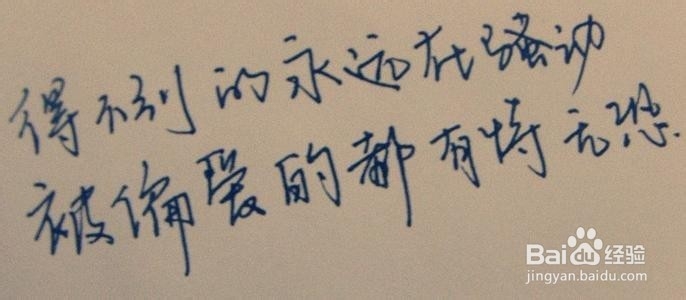 得不到的永远在骚动
被偏爱的都有恃无恐.
Baidu经验
jingyan.baidu.com